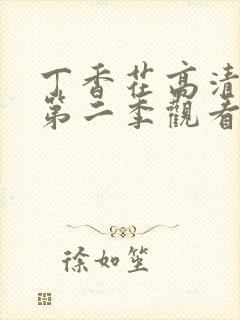 丁香花高清
第二季觀看
徐如笙